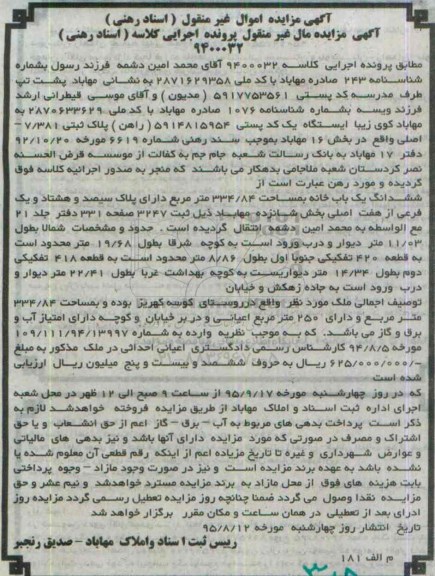 آگهی مزایده اموال غیر منقول ( اسناد رهنی )
آگهی مزایده مال غیر منقول پرونده اجرایی کلاسه ( اسناد رهنی )
۹۴۰۰۰۳۲
مطابق پرونده اجرایی کلاسه ۹۴۰۰۰۳۲ آقای محمد امین دشمه فرزند رسول بشماره
شناسنامه ۲۴۳ صادره مهاباد با کد ملی ۲۸۷۱۶۲۹۳۵۸ به نشانی مهاباد پشت تپ
طرف مدرسه کد پستی ۵۹۱۷۷۵۳۵۶۱ ( مدیون ) و آقای موسی قیطرانی ارشد
فرزند ویسه بشماره شناسنامه ۱۰۷۶ صادره مهاباد با کد ملی ۲۸۷۰۶۳۳۶۲۹ به
مهاباد کوی زیبا ایستگاه یک کد پستی ۵۹۱۴۸۱۵۹۵۴ ( راهن ) پلاک ثبتی ۷/۳۸۱ –
اصلی واقع در بخش ۱۶ مهاباد بموجب سند رهنی شماره ۶۶۱۹ مورخه ۹۲/۱۰/۲۰
دفتر ۱۷ مهاباد به بانک رسالت شعبه جام جم به کفالت از موسسه قرض الحسنه
نصر کردستان شعبه ملاجامی بدهکار می باشند که منجر به صدور اجرائیه کلاسه فوق
گردیده و مورد رهن عبارت است از
ششدانگ یک باب خانه بمساحت ۳۳۴/۸۴ متر مربع دارای پلاک سیصد و هشتاد و یک
فرعی از هفت اصلی بخش شانزده مهاباد ذیل ثبت ۳۲۴۷ صفحه ۳۳۱ دفتر جلد ۲۱
مع الواسطه به محمد امین دشمه انتقال گردیده است . حدود و مشخصات شمالا بطول
۱۱/۰۳ متر دیوار و درب ورود است به کوچه شرقا بطول ۱۹/۶۸ متر محدود است
به قطعه ۴۲۰ تفکیکی جنوبا اول بطول ۸/۸۶ متر محدود است به قطعه ۴۱۸ تفکیکی
دوم بطول ۱۴/۳۴ متر دیواریست به کوچه بهداشت غربا بطول ۲۲/۴۱ متر دیوار و
درب ورود است به جاده زهکش و خیابان
توصیف اجمالی ملک مورد نظر واقع در روستای کوسه کهریز بوده و بمساحت ۳۳۴/۸۴
متر مربع و دارای ۲۵۰ متر مربع اعیانی و در بر خیابان و کوچه دارای امتیاز آب و
برق و گاز می باشد. که به موجب نظریه وارده به شماره ۱۰۹/۱۱۱/۹۴/۱۳۹۹۷
مورخه ۹۴/۸/۵ کارشناس رسمی دادگستری اعیانی احداثی در ملک مذکور به مبلغ
۶۲۵/۰۰۰/۰۰۰/– ریال به حروف ششصد و بیست و پنج میلیون ریال ارزیابی
شده است
که در روز چهارشنبه مورخه ۹۵/۹/۱۷ از ساعت ۹ صبح الی ۱۲ ظهر در محل شعبه
اجرای اداره ثبت اسناد و املاک مهاباد از طریق مزایده فروخته خواهدشد لازم به
ذکر است پرداخت بدهی های مربوط به آب – برق – گاز اعم از حق انشعاب و یا حق
اشتراک و مصرف در صورتی که مورد مزایده دارای آنها باشد و نیز بدهی های مالیاتی
و عوارض شهرداری و غیره تا تاریخ مزیاده اعم از اینکه رقم قطعی آن معلوم شده یا
نشده باشد به عهده برنده مزایده است و نیز در صورت وجود مازاد – وجوه پرداختی
بابت هزینه های فوق از محل مازاد به برنده مزایده مسترد خواهدشد و نیم عشر و حق
مزایده نقدا وصول می گردد ضمنا چنانچه روز مزایده تعطیل رسمی گردد مزایده روز
ادرای بعد از تعطیلی در همان ساعت و مکان مقرر برگزار خواهد شد
تاریخ انتشار روز چهارشنبه مورخه ۹۵/۸/۱۲
رییس ثبت اسناد واملاک مهاباد – صدیق رنجبر
م الف ۱۸۱